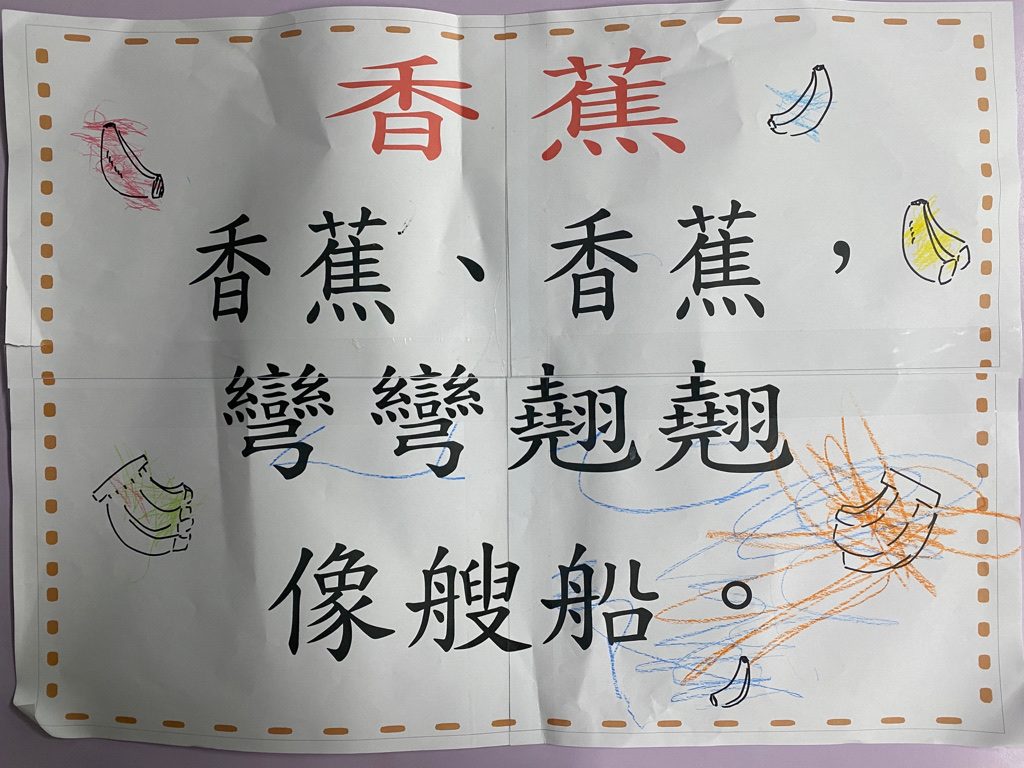 香蕉
香蕉、香蕉，
彎彎翹翹
像艘船。